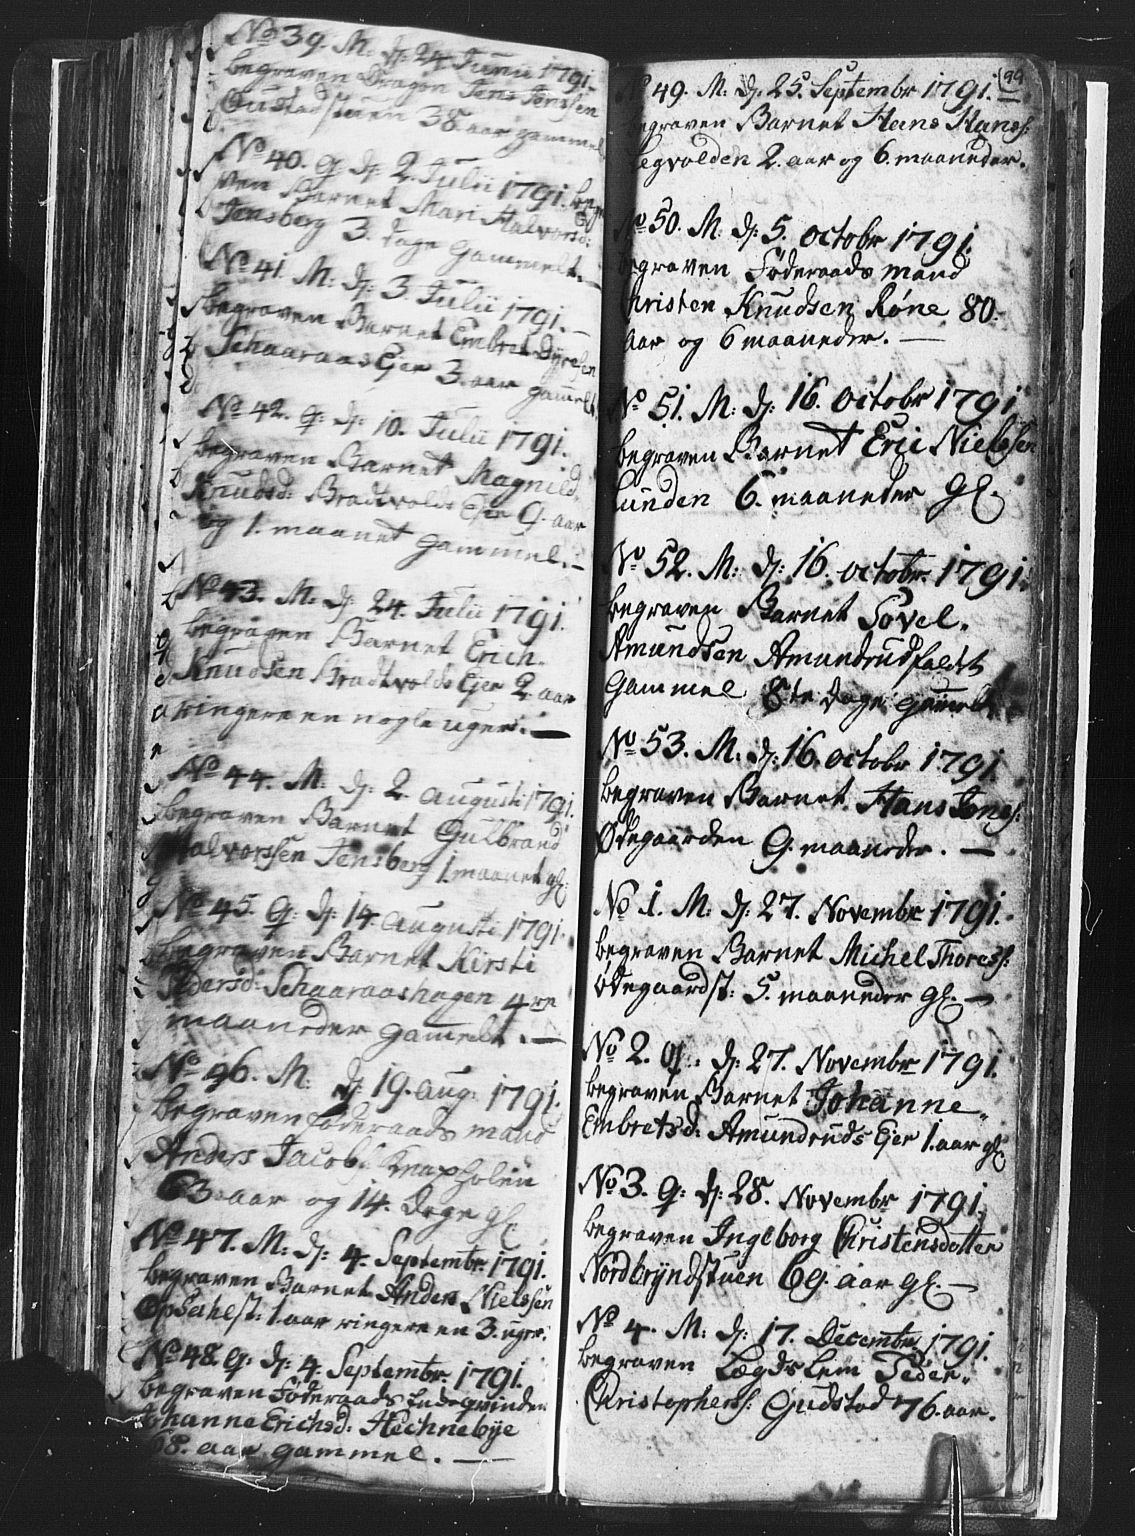 No 39. M. d: 24 Junii 1791.
begraven Dragon Jens Jenssen
Gustadstuen 38 aar gammel
No 40. Q d: 2. Julii 1791. begr
ven Barnet Mari Halvorsd:
Jensberg 3. dage gammelt.
No 41. M: d: 3. Julii 1791.
begraven Barnet Embret Dyresen
Schaaraas Ejer 3. aar gamelt
No 42. Q: d: 10. Julii 1791.
begraven Barnet Magnild
Knudsd: Bradtvolds Ejer 9. aar
og 1. maanet gammel.
No 43. M: d: 24. Julii 1791.
begraven Barnet Erich
Knudsen Bradtvolds Ejer 2 aar
ringere en nogle uger.
No 44. M. d: 2. augusti 1791.
begraven Barnet Gulbrand
Halvorssen Jensberg 1. maanet gl.
No 45. Q: d: 14. augusti 1791.
begraven Barnet Kirsti
Pedersd: Schaaraashagen 4re
maaneder gamelt.
No 46. M: d: 19. aug: 1791.
begraven føderaads mand
Anders Jacobs: Knapholen
63 aar og 14. dage gl.
No 47. M: d: 4. Septembr: 1791.
begraven Barnet Anders Nielssen
Opsahlst: 1. aar ringere en 3. uger.
No 48. Q: d: 4. Septembr. 1791.
begraven Føderaads Indeqvinde
Johanne Erichsd: Hechnebye
68. aar gammel.
99
49. M: d: 25. Septembr 1791.
egraven Barnet Hans Hanss:
egvolden 2. aar og 6. maaneder.
No 50. M. d: 5. octobr 1791.
egraven Føderaads mand
Christen Knudsen Røne 80.
aar og 6 maaneder.
No 51. M: d: 16. octobr 1791
begraven Barnet Eric Nielssen
Lunden 6. maaneder gl.
No 52. M: d: 16. octobr. 1791.
begraven Barnet Søvel.
Amundsen Amundrudfaldet
gammel 8te dage gamelt
No 53. M. d: 16. octobr 1791.
begraven Barnet Hans Jons:
Ødegaarden 9. maaneder.
No 1. M: d: 27. Novembr 1791.
begraven Barnet Michel Thoress:
Ødegaardst: 5. maaneder gl.
No 2. Q: d: 27. Novembr 1791.
begraven Barnet Johanne
Embretsd: Amundruds Ejer 1. aar gl
No 3. Q: d: 28. Novembr 1791.
begraven Ingeborg Christensdotter
Nordbryndstuen 69. aar gl.
No 4. M: d: 17. Decembr. 1791.
begraven Lægdslem Peder
Christophers: Gudstad 76. aar.